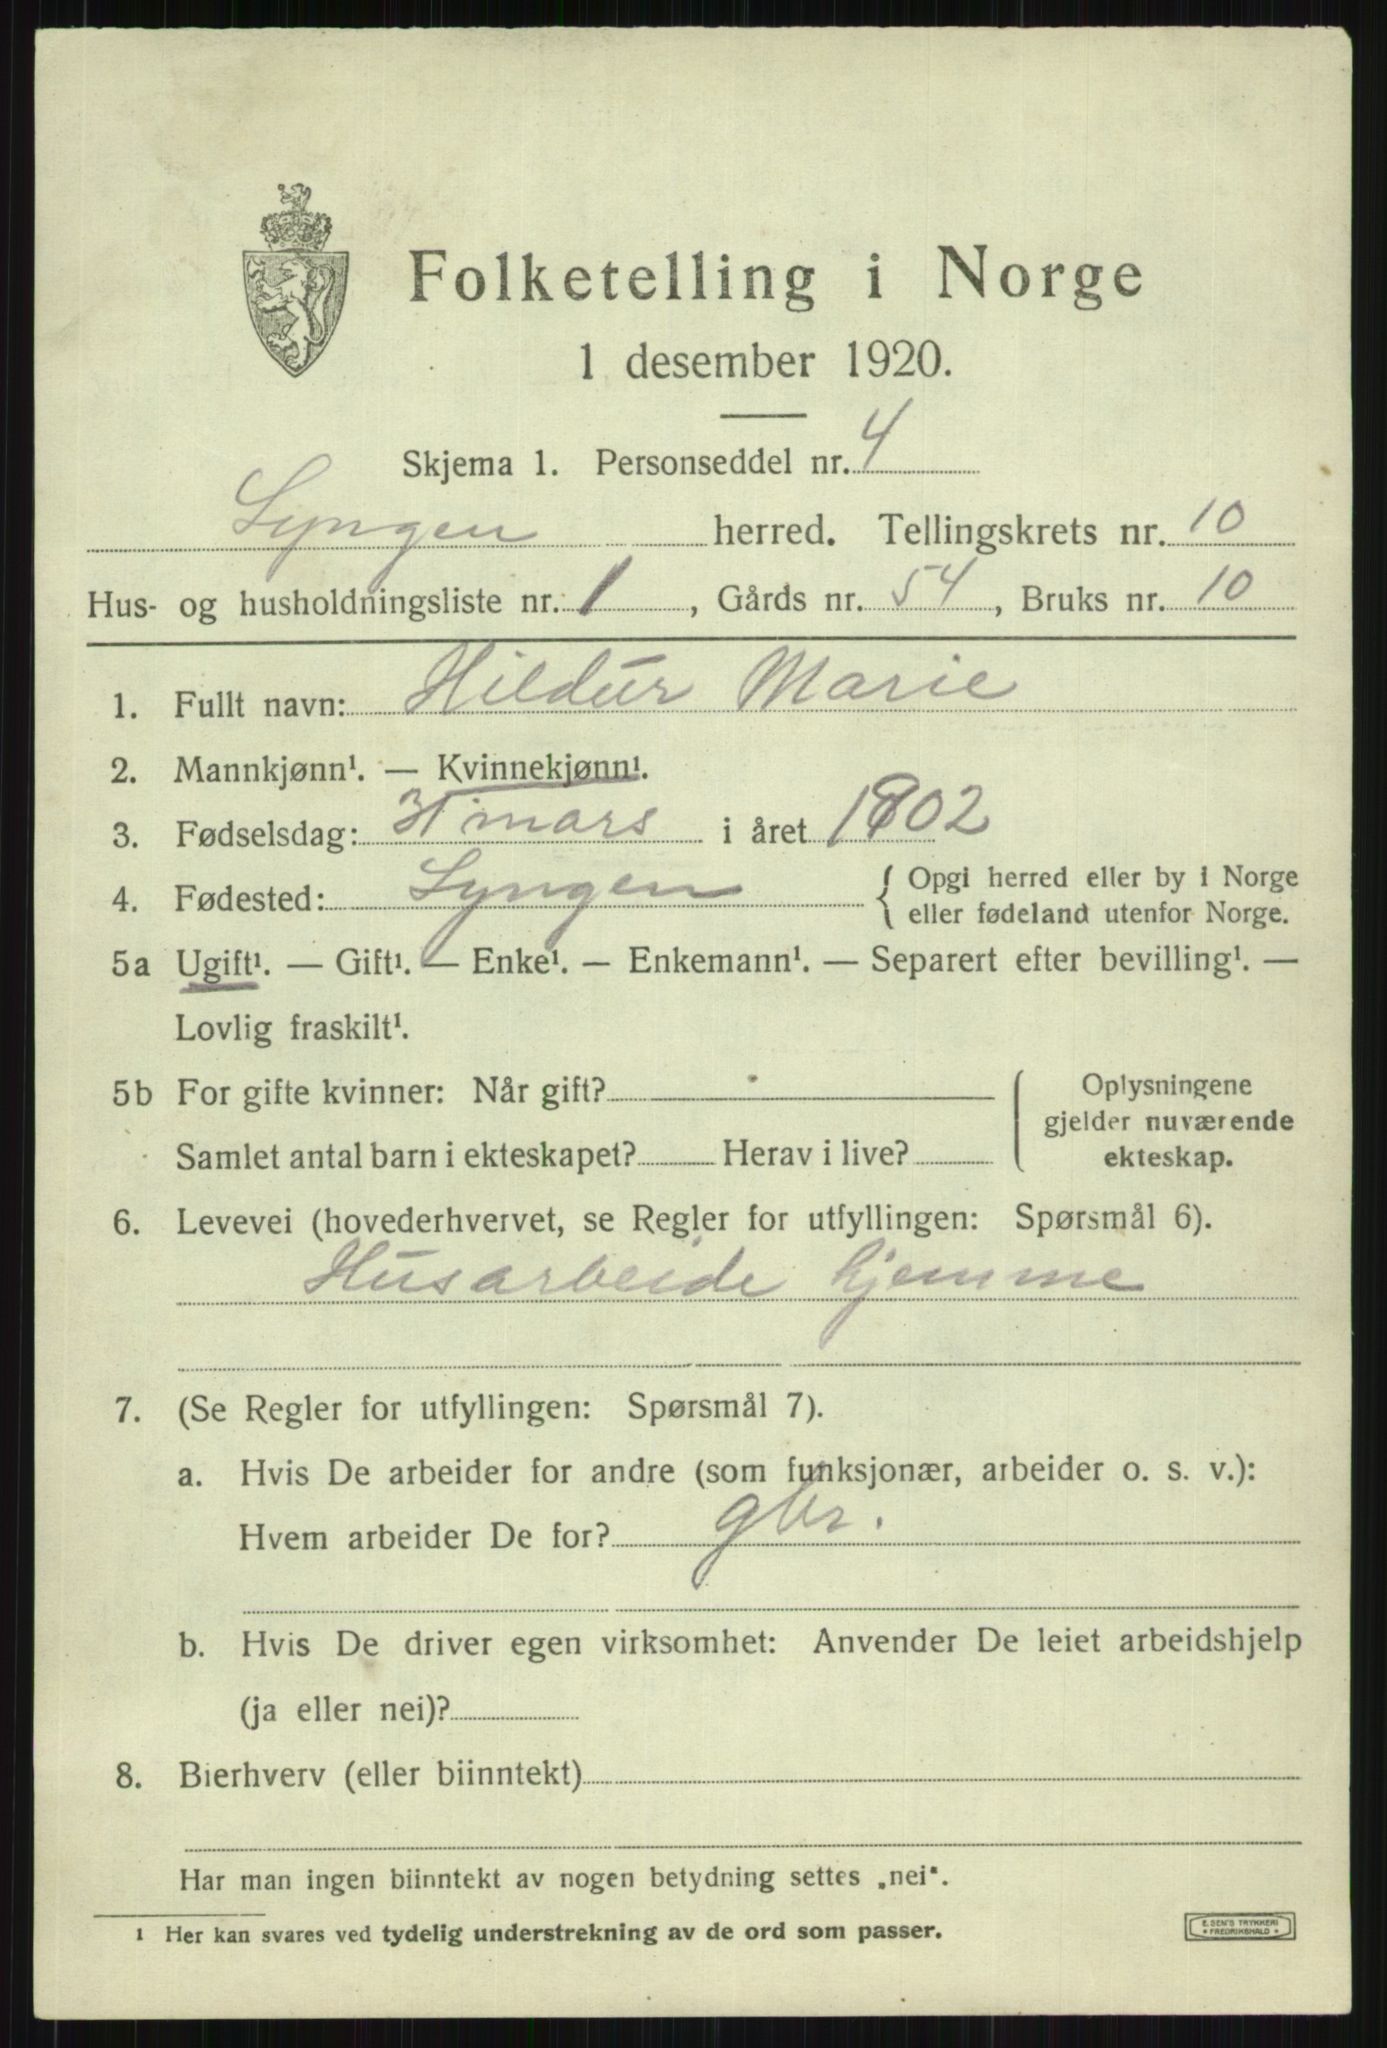 Folketelling i Norge
1 desember 1920.
Skjema 1. Personseddel nr. 4
Lyngen herred. Tellingskrets nr. 10
Hus- og husholdningsliste nr. 1, Gårds nr. 54, Bruks nr. 10
1. Fullt navn: Hildur Marie
2. Mannkjønn¹. — Kvinnekjønn¹.
3. Fødselsdag: 31 mars i året 1902
4. Fødested: Lyngen { Opgi herred eller by i Norge
eller fødeland utenfor Norge.
5a Ugift¹. — Gift¹. — Enke¹. — Enkemann¹. — Separert efter bevilling¹. —
Lovlig fraskilt¹.
5b For gifte kvinner: Når gift?
Samlet antal barn i ekteskapet? Herav i live?
Oplysningene
gjelder nuværende
ekteskap.
6. Levevei (hovederhvervet, se Regler for utfyllingen: Spørsmål 6).
Husarbeide hjemme
7. (Se Regler for utfyllingen: Spørsmål 7).
a. Hvis De arbeider for andre (som funksjonær, arbeider o. s. v.):
Hvem arbeider De for? gbr.
b. Hvis De driver egen virksomhet: Anvender De leiet arbeidshjelp
(ja eller nei)?
8. Bierhverv (eller biinntekt)
Har man ingen biinntekt av nogen betydning settes „nei“.
¹ Her kan svares ved tydelig understrekning av de ord som passer.
E. SEM'S TRYKKERI
* FREDRIKSHALD *